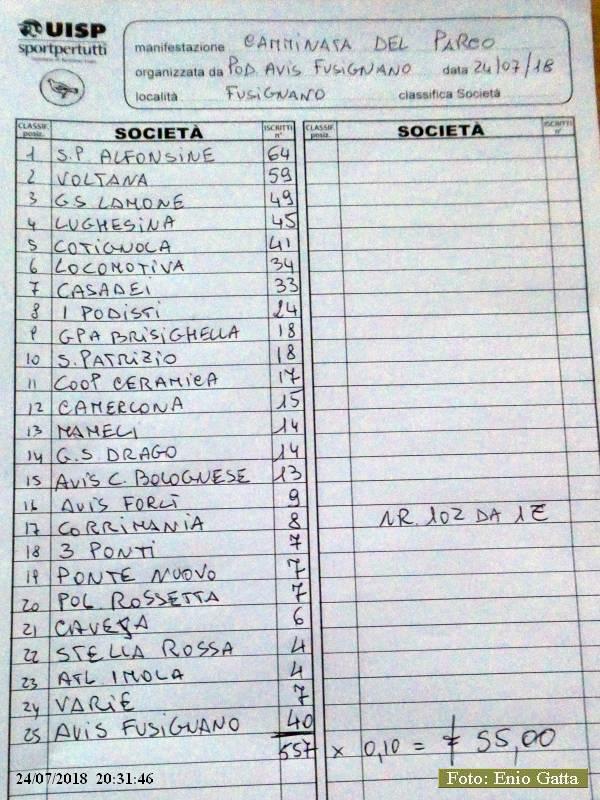 UISP
sportpertutti
manifestazione CAMMINATA DEL PARCO
organizzata da POD. AVIS FUSIGNANO data 24/07/18
località FUSIGNANO classifica Società
CLASSIF. posiz. SOCIETÀ ISCRITTI n° CLASSIF. posiz. SOCIETÀ ISCRITTI n°
1 S.P ALFONSINE 64
2 VOLTANA 59
3 GS LAMONE 49
4 LUGHESINA 45
5 COTIGNOLA 41
6 LOCOMOTIVA 34
7 CASADEI 33
8 I PODISTI 24
9 GPA BRISIGHELLA 18
10 S. PATRIZIO 18
11 COOP CERAMICA 17
12 CAMERLONA 15
13 MAMELI 14
14 G.S DRAGO 14
15 AVIS C. BOLOGNESE 13
16 AVIS FORLÌ 9
17 CORRIMANIA 8
NR. 102 DA 1€
18 3 PONTI 7
19 PONTE NUOVO 7
20 POL. ROSSETTA 7
21 CAVEJA 6
22 STELLA ROSSA 4
23 ATL IMOLA 4
24 VARIE 7
25 AVIS FUSIGNANO 40
557 x 0,10 = € 55,00
24/07/2018 20:31:46
Foto: Enio Gatta